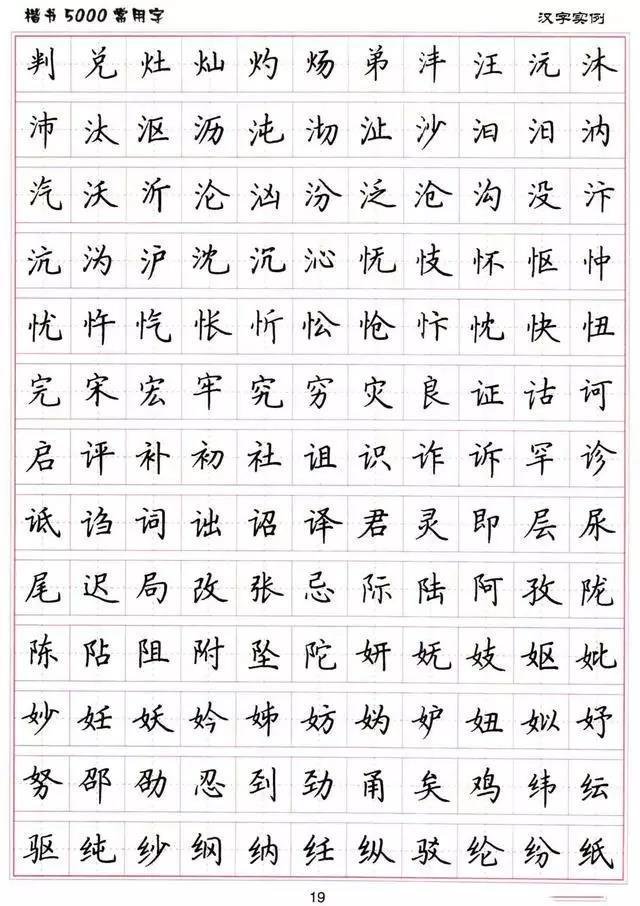 楷书5000常用字 汉字实例
判兑灶灿灼炀弟沣汪沅沐
沛汰沤沥沌沏沚沙汨汩汭
汽沃沂沦汹汾泛沧沟没汴
沆沩沪沈沉沁怃忮怀怄忡
忧忤忾怅忻忪怆忭忱快忸
完宋宏牢究穷灾良证诂诃
启评补初社诅识诈诉罕诊
诋诌词诎诏译君灵即层尿
尾迟局改张忌际陆阿孜陇
陈阽阻附坠陀妍妩妓妪妣
妙妊妖妗姊妨妫妒妞姒妤
努邵劭忍到劲甬矣鸡纬纭
驱纯纱纲纳纴纵驳纶纷纸
19